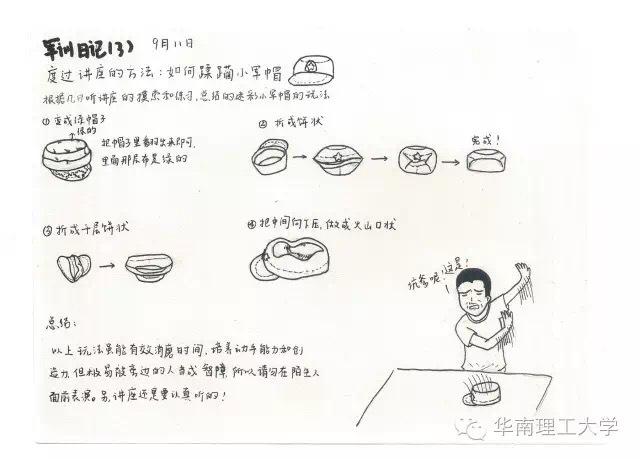 军训日记(3) 9月11日
度过讲座的方法:如何蹂躏小军帽
根据几日听讲座的摸索和练习,总结的迷彩小军帽的玩法
①变成绿帽子
绿的
把帽子里翻出来即可,
里面那层布是绿的
②折成饼状
完成!
③折成千层饼状
④把中间向下压,做成火山口状
坑爹呢!这是!
总结:
以上玩法虽能有效消磨时间,培养动手能力和创
造力,但极易被旁边的人当成智障,所以请勿在陌生人
面前表演。另,讲座还是要认真听的!
华南理工大学